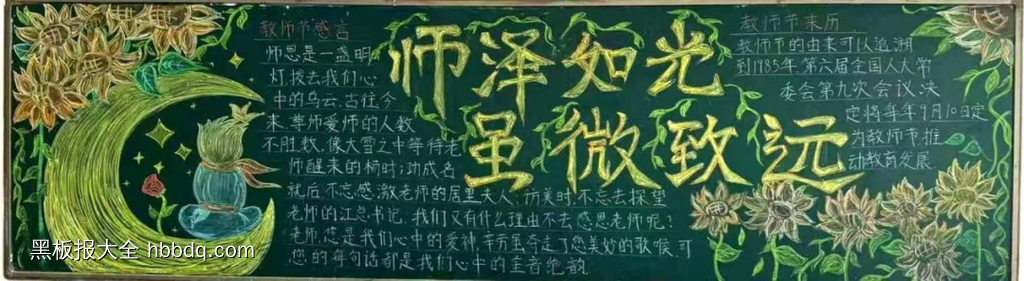 教师节感言
师恩是一盏明
灯,拨去我们心
中的乌云,古往今
来,尊师爱师的人数
不胜数,像大雪之中等待老
师醒来的杨时;功成名
就后,不忘感激老师的居里夫人,访美时,不忘去探望
老师的江总书记,我们又有什么理由不去感恩老师呢?
老师,您是我们心中的爱神,辛苦虽夺走了您美妙的歌喉,可
您的每句话都是我们心中的金音绝韵
师泽如光
虽微致远
教师节来历
教师节的由来可以追溯
到1985年,第六届全国人大常
委会第九次会议,决
定将每年9月10日定
为教师节,推
动教育发展
黑板报大全 hbbdq.com